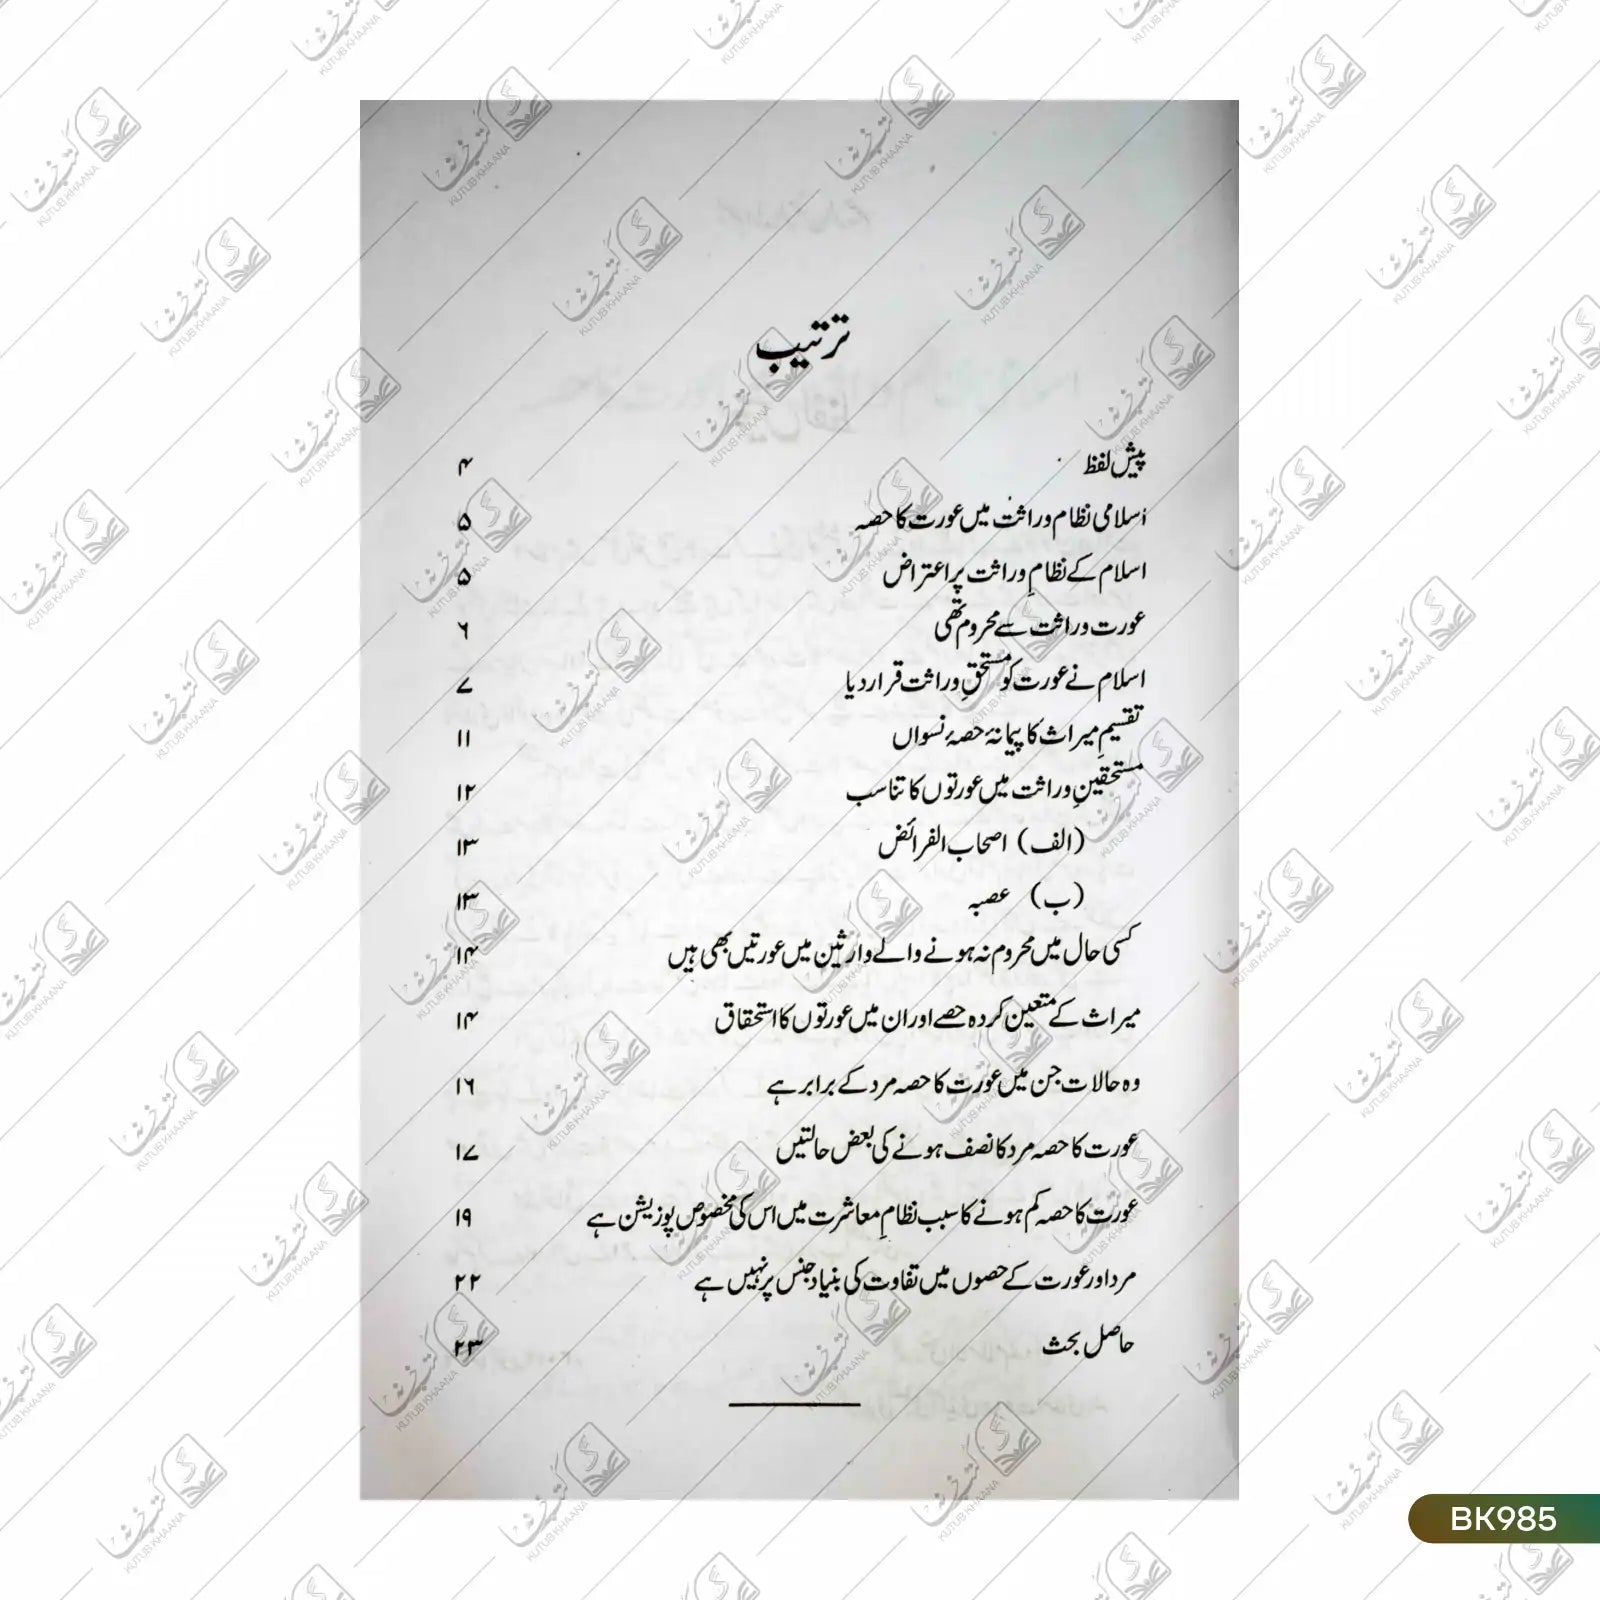 ترتیب
پیش لفظ ۴
اسلامی نظام وراثت میں عورت کا حصہ ۵
اسلام کے نظامِ وراثت پر اعتراض ۵
عورت وراثت سے محروم تھی ۶
اسلام نے عورت کو مستحقِ وراثت قرار دیا ۷
تقسیمِ میراث کا پیمانۂ حصۂ نسواں ۱۱
مستحقینِ وراثت میں عورتوں کا تناسب ۱۲
(الف) اصحاب الفرائض ۱۳
(ب) عصبہ ۱۳
کسی حال میں محروم نہ ہونے والے وارثین میں عورتیں بھی ہیں ۱۴
میراث کے متعین کردہ حصے اور ان میں عورتوں کا استحقاق ۱۴
وہ حالات جن میں عورت کا حصہ مرد کے برابر ہے ۱۶
عورت کا حصہ مرد کا نصف ہونے کی بعض حالتیں ۱۷
عورت کا حصہ کم ہونے کا سبب نظامِ معاشرت میں اس کی مخصوص پوزیشن ہے ۱۹
مرد اور عورت کے حصوں میں تفاوت کی بنیاد جنس پر نہیں ہے ۲۲
حاصل بحث ۲۳
کتب خانہ
KUTUB KHAANA
BK985